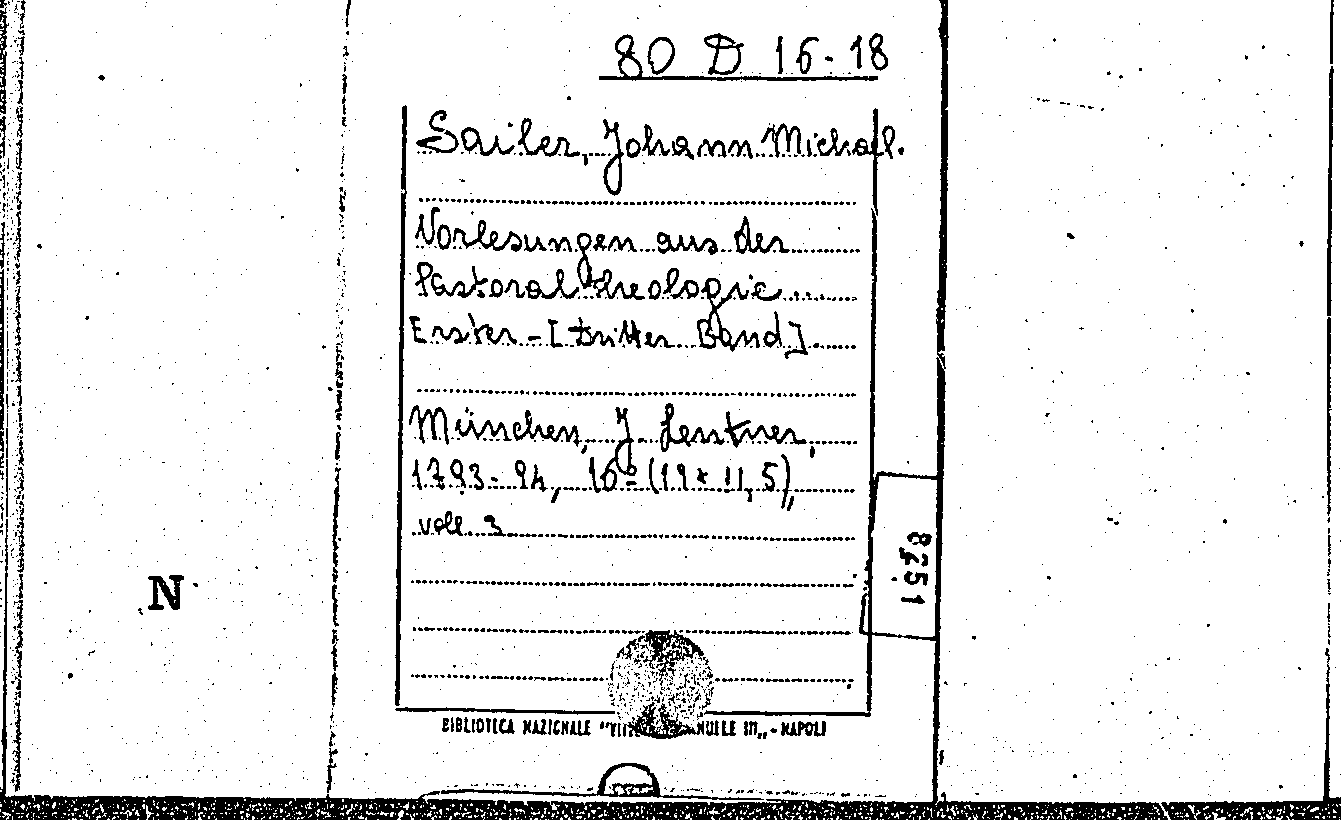 80 D 16-18
Sailer, Johann Michael.
Vorlesungen aus der
Pastoraltheologie...
Erster-[dritter Band].
München, J. Lentner,
1793-94, 16º (19x11,5),
voll. 3
8651
N
BIBLIOTECA NAZIONALE "VITT NUELE III„ - NAPOLI